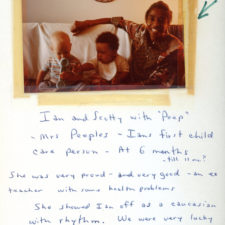 Ian and Scotty with "Peep"
- Mrs Peoples - Ians first child
care person - At 6 months
- till 11 mo?
She was very proud - and very good - an ex
teacher with some health problems
She showed Ian off as a caucasian
with rhythm. We were very lucky